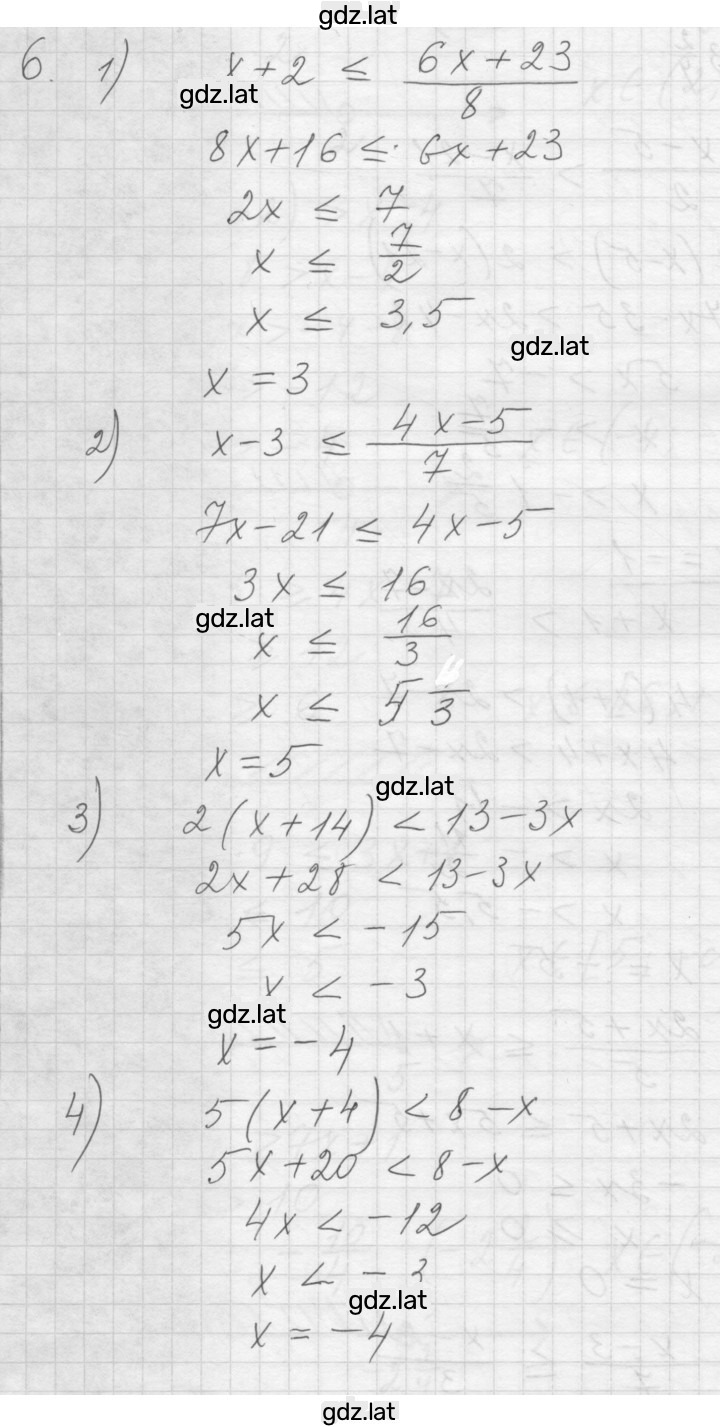 gdz.lat
6. 1) x+2 ≤ 6x+23/8
gdz.lat
8x+16 ≤ 6x+23
2x ≤ 7
x ≤ 7/2
x ≤ 3,5
gdz.lat
x = 3
2) x-3 ≤ 4x-5/7
7x-21 ≤ 4x-5
3x ≤ 16
gdz.lat
x ≤ 16/3
x ≤ 5 /3
x = 5
gdz.lat
3) 2(x+14) < 13-3x
2x+28 < 13-3x
5x < -15
x < -3
gdz.lat
x = -4
4) 5(x+4) < 8-x
5x+20 < 8-x
4x < -12
x < -3
gdz.lat
x = -4
gdz.lat